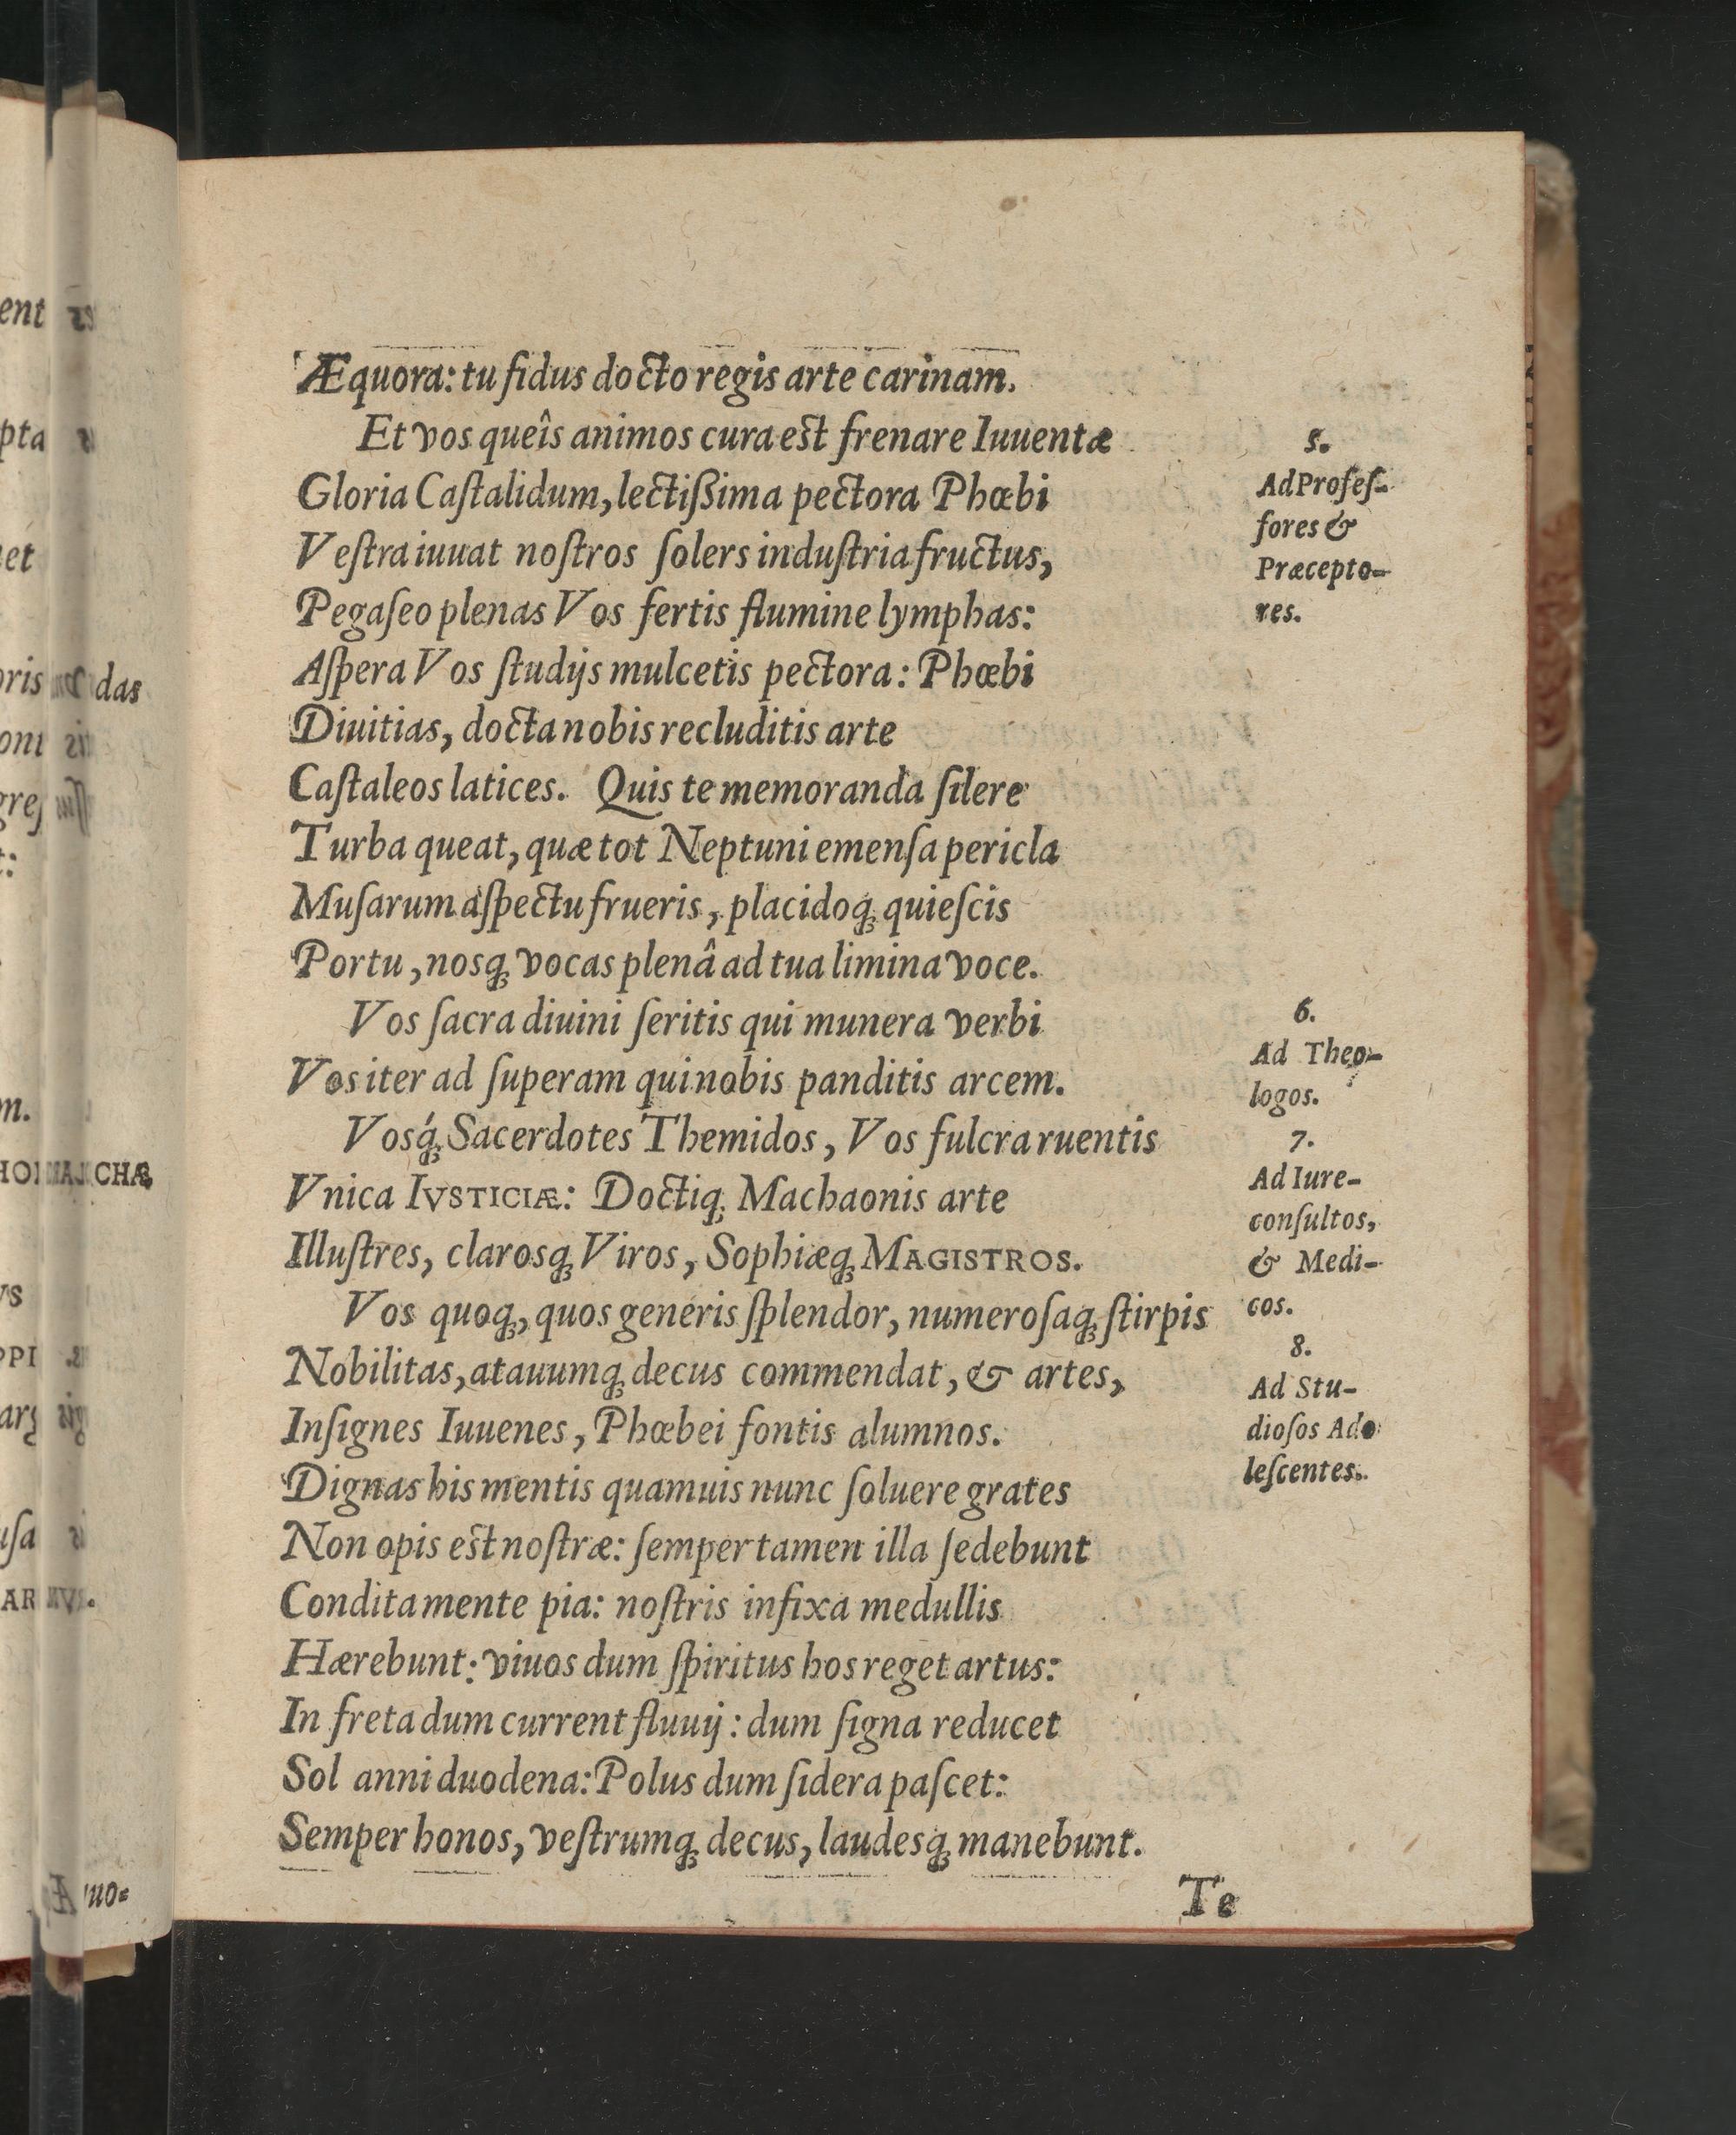 Æquora: tu fidus docto regis arte carinam.
Et vos queîs animos cura est frenare Iuuentæ
Gloria Caſtalidum, lectiſsima pectora Phœbi
Veſtra iuuat noſtros ſolers induſtria fructus,
Pegaſeo plenas Vos fertis flumine lymphas:
Aſpera Vos ſtudijs mulcetis pectora: Phœbi
Diuitias, docta nobis recluditis arte
Caſtaleos latices. Quis te memoranda ſilere
Turba queat, quæ tot Neptuni emenſa pericla
Muſarum aſpectu frueris, placidoq́ꝫ quieſcis
Portu, nosqꝫ vocas plenâ ad tua limina voce.
Vos ſacra diuini ſeritis qui munera verbi
Vos iter ad ſuperam qui nobis panditis arcem.
Vosq́ꝫ Sacerdotes Themidos, Vos fulcra ruentis
Vnica IVSTICIÆ: Doctiqꝫ Machaonis arte
Illuſtres, clarosqꝫ Viros, Sophiæqꝫ MAGISTROS.
Vos quoqꝫ, quos generis ſplendor, numeroſaqꝫ ſtirpis
Nobilitas, atauumqꝫ decus commendat, & artes,
Inſignes Iuuenes, Phœbei fontis alumnos.
Dignas his mentis quamuis nunc ſoluere grates
Non opis est noſtræ: ſemper tamen illa ſedebunt
Condita mente pia: noſtris infixa medullis
Hærebunt: viuos dum ſpiritus hos reget artus:
In freta dum current fluuij: dum ſigna reducet
Sol anni duodena: Polus dum ſidera paſcet:
Semper honos, veſtrumqꝫ decus, laudesqꝫ manebunt.
Te
5.
Ad Profeſ-
ſores &
Præcepto-
res.
6.
Ad Theo-
logos.
7.
Ad Iure-
conſultos,
& Medi-
cos.
8.
Ad Stu-
dioſos Ado
leſcentes.